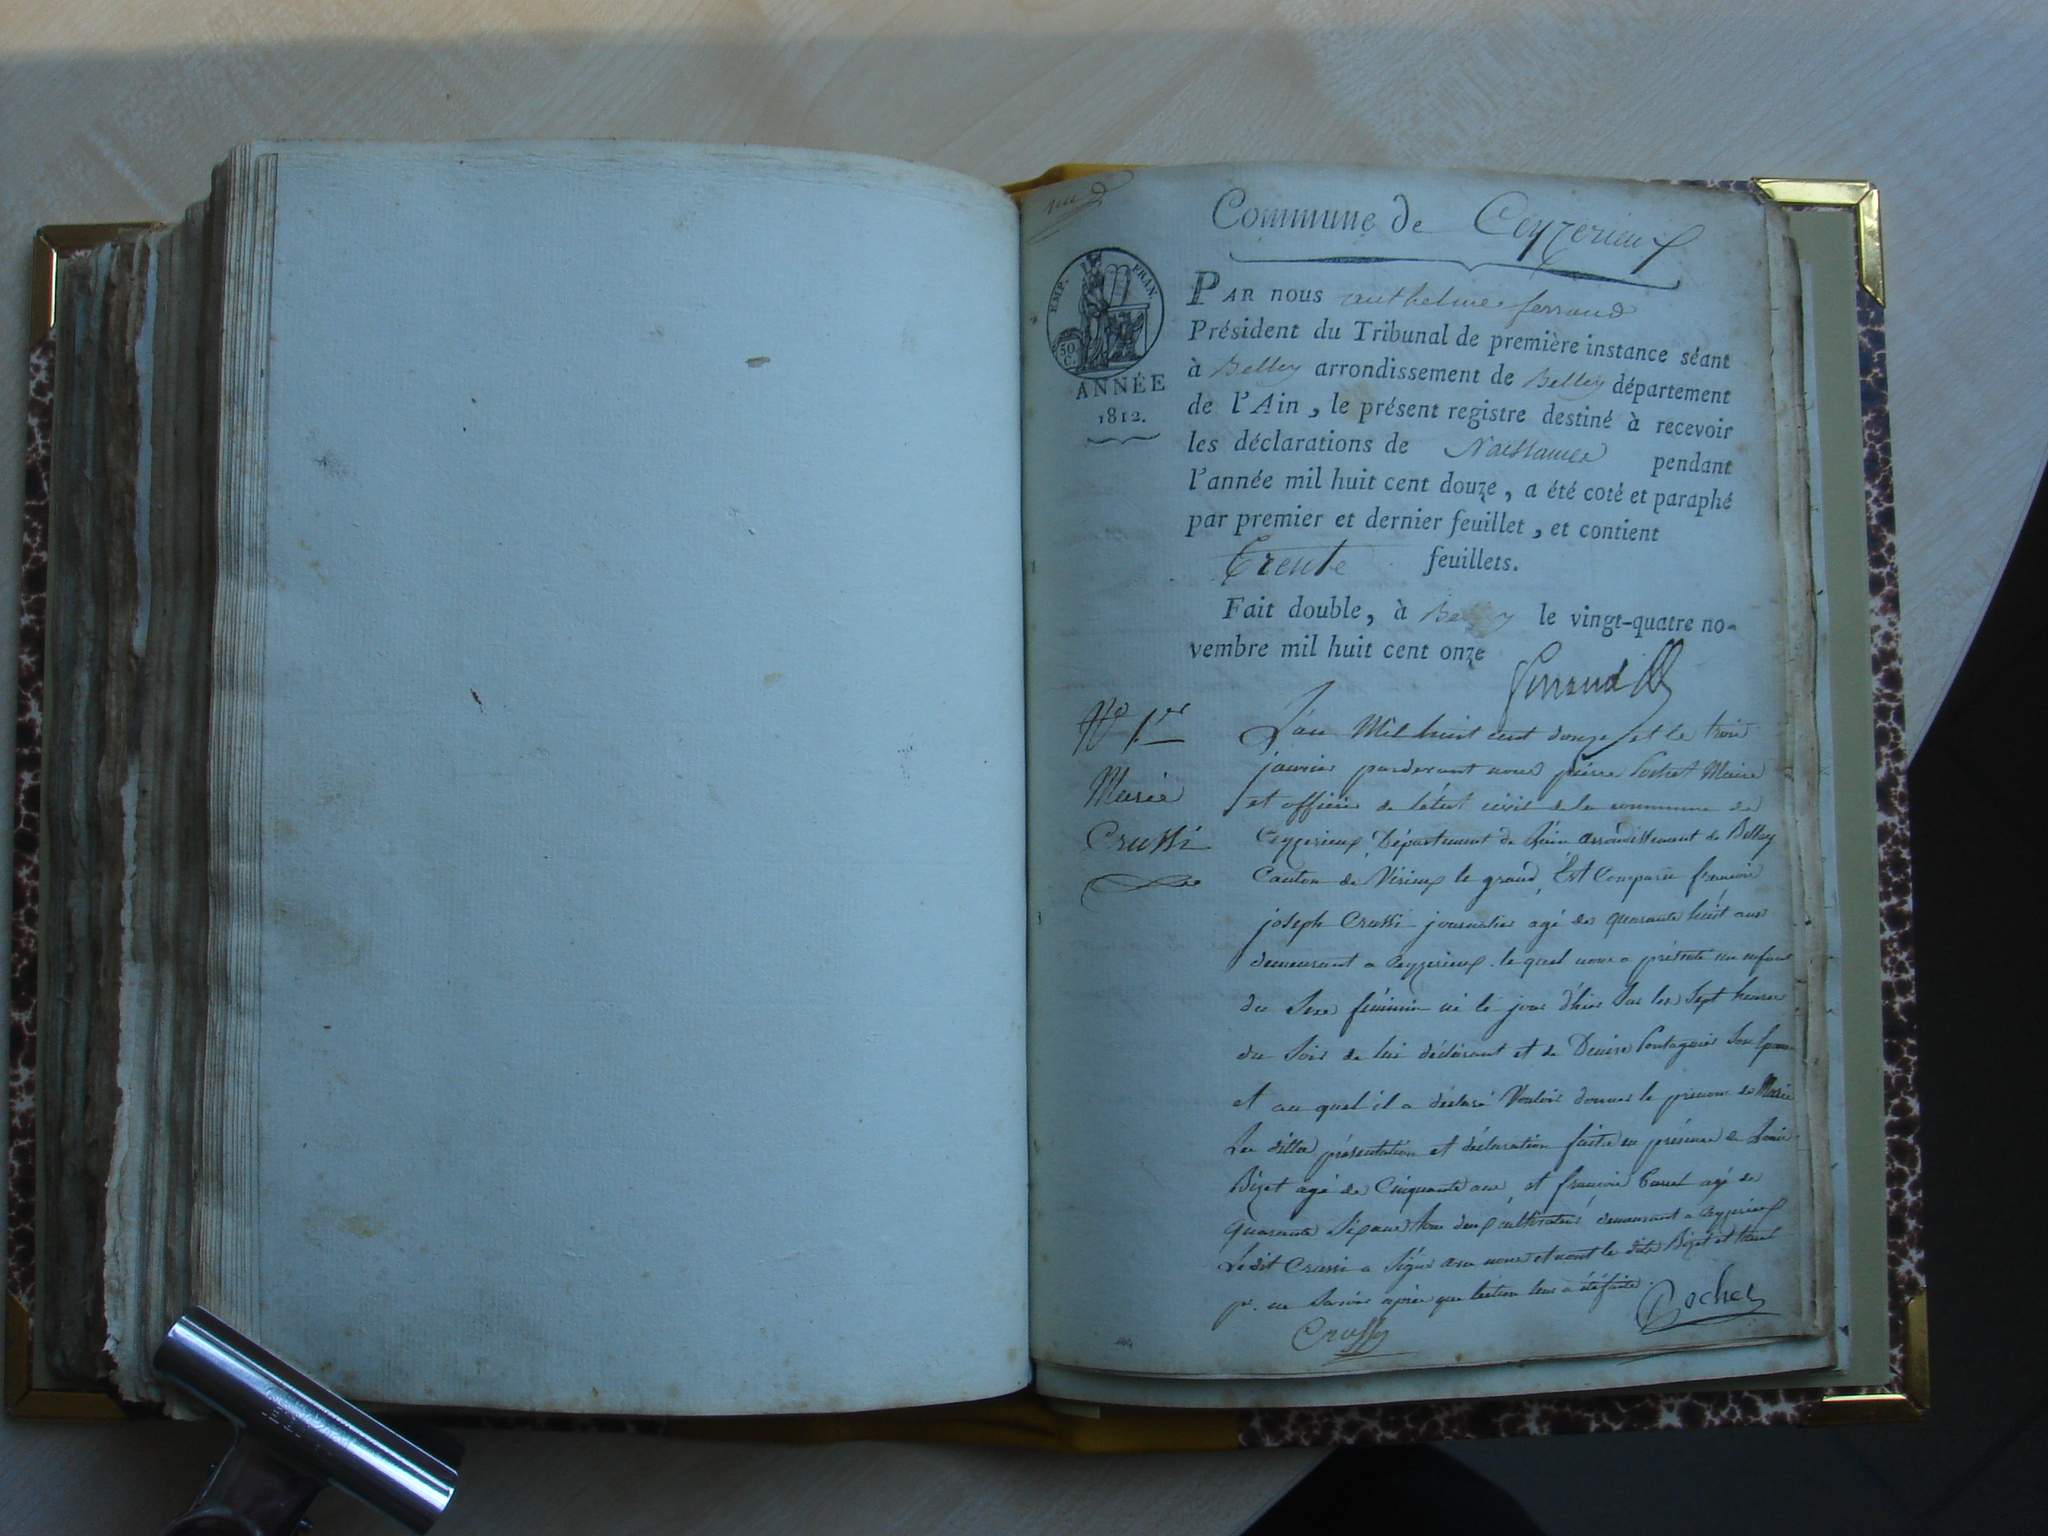 Commune de Ceyzerieux
EMP. FRAN.
50 C.
ANNÉE
1812.
PAR nous anthelme ferrand
Président du Tribunal de première instance séant
à Belley arrondissement de Belley département
de l'Ain, le présent registre destiné à recevoir
les déclarations de Naissances pendant
l'année mil huit cent douze, a été coté et paraphé
par premier et dernier feuillet, et contient
Trente feuillets.
Fait double, à Belley le vingt-quatre no-
vembre mil huit cent onze
Ferrand
N° 1.er
Marie
Crussi
L'an Mil huit cent douze et le trois
janvier pardevant nous pierre Pochet Maire
et officier de l'état civil de la commune de
Ceyzerieux Département de l'ain arrondissement de Belley
Canton de Virieux le grand, Est Comparu francois
joseph Crussi journalier agé de quarante huit ans
demeurant a Ceyzerieux le quel nous a présenté un enfant
du Sexe féminin né le jour d'hier Sur les Sept heures
du Soir de lui déclarant et de Denise Pontagnier Son Epouse
et au quel il a déclaré Vouloir donner le prénom de Marie
Les dittes présentation et déclaration faite en présence de Louis
Bizet agé de Cinquante ans et francois agé de
quarante Six ans tous deux cultivateurs demeurant a Ceyzerieux
Ledit Crussi a Signé avec nous et non le dits Bizet et
pr. ne Savoir après que lection leur a été faite
Crussy
Pochet